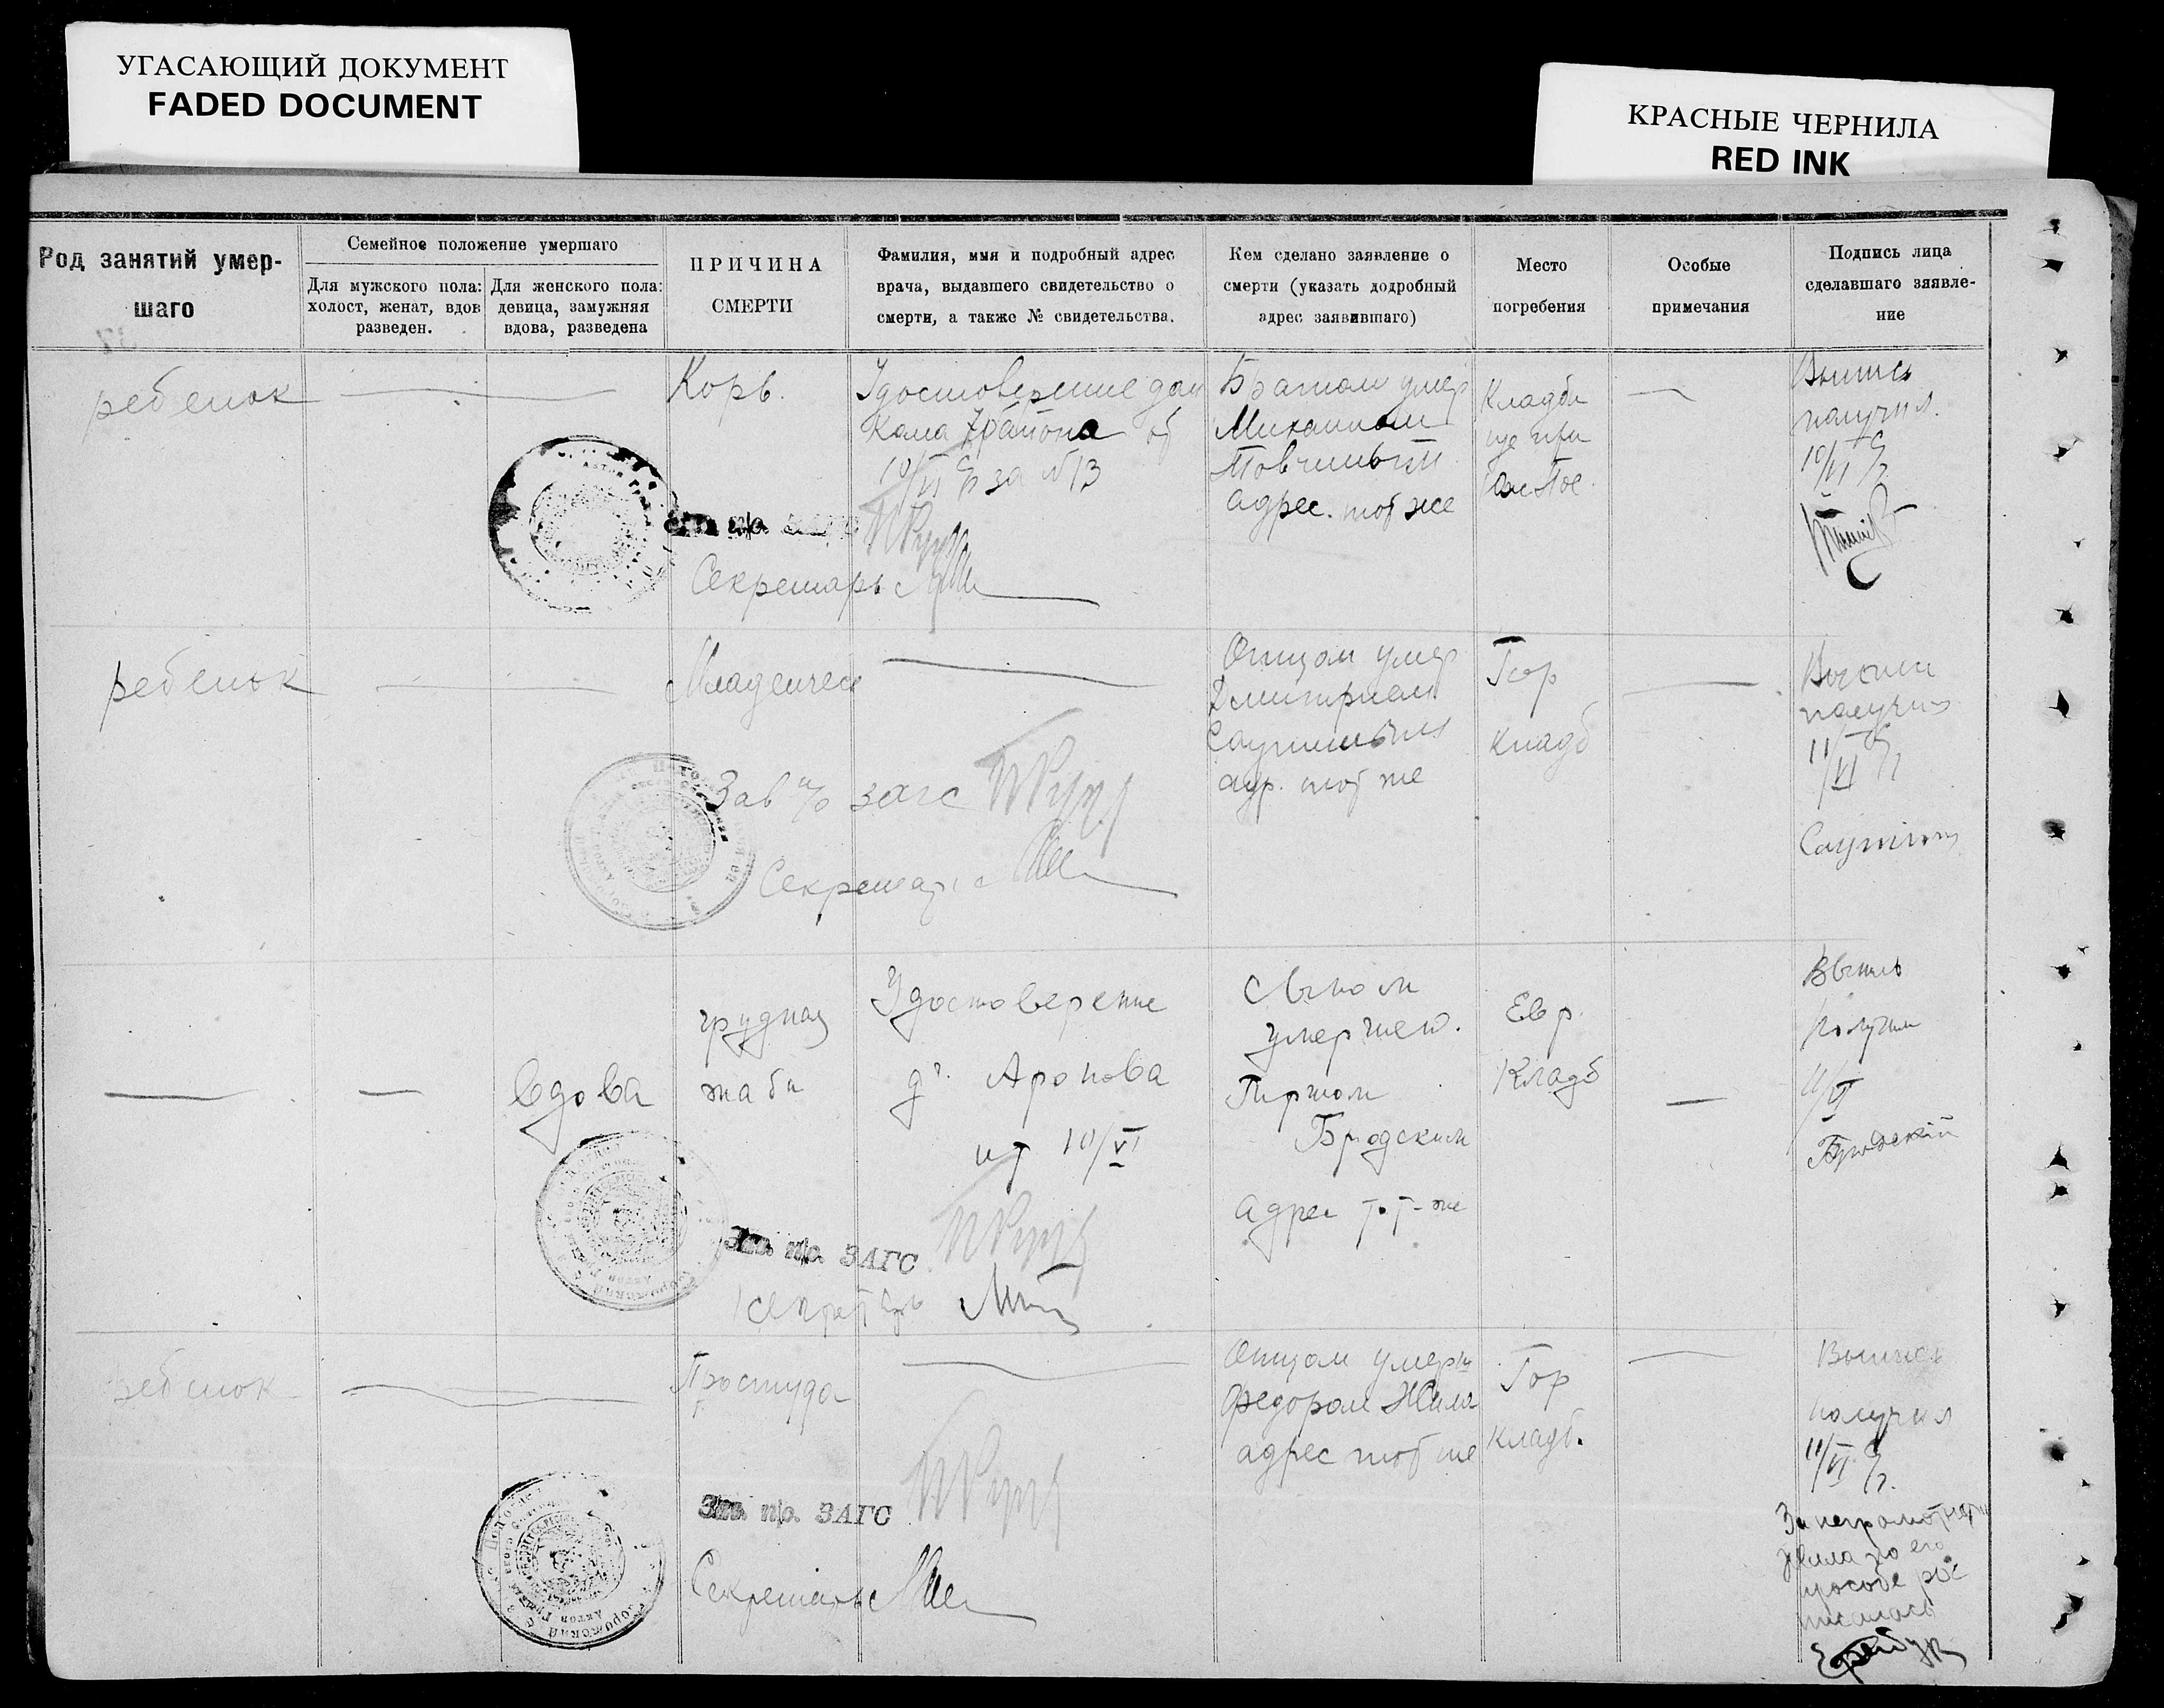 УГАСАЮЩИЙ ДОКУМЕНТ
FADED DOCUMENT
КРАСНЫЕ ЧЕРНИЛА
RED INK
Род занятий умер-
шаго
Семейное положение умершаго
Для мужского пола:
холост, женат, вдов
разведен.
Для женского пола:
девица, замужняя
вдова, разведена
ПРИЧИНА
СМЕРТИ
Фамилия, имя и подробный адрес
врача, выдавшего свидетельство о
смерти, а также № свидетельства.
Кем сделано заявление о
смерти (указать додробный
адрес заявившаго)
Место
погребения
Особые
примечания
Подпись лица
сделавшаго зяявле-
ние
ребенок
Корь.
Удостоверение дом
кома 7 района от
10/VI за №13
Братом умер
Михаилом
адрес. тот же
Кладби
ще при
Выпись
получил.
10/VI
Секретарь
ребенок
Младенческ
Отцом умер
Дмитрием
адр. тот же
Гор
кладб
Выпись
получил
11/VI
Зав п/о загс
Секретарь
вдова
грудная
жаба
Удостоверение
д. Аронова
от 10/VI
Сыном
умершей.
Гиршом
Бродским
адрес т.т-же
Евр.
Кладб
Выпись
получил
11/VI
Бродский
Зав. п/о. ЗАГС
Секретарь
ребенок
Простуда
Отцом умерш
Федором Жила
адрес тот же
Гор
кладб.
Выпись
получил
11/VI
За неграмотнаго
Жила по его
просьбе рос
писалась
Зав. п/о. ЗАГС
Секретарь